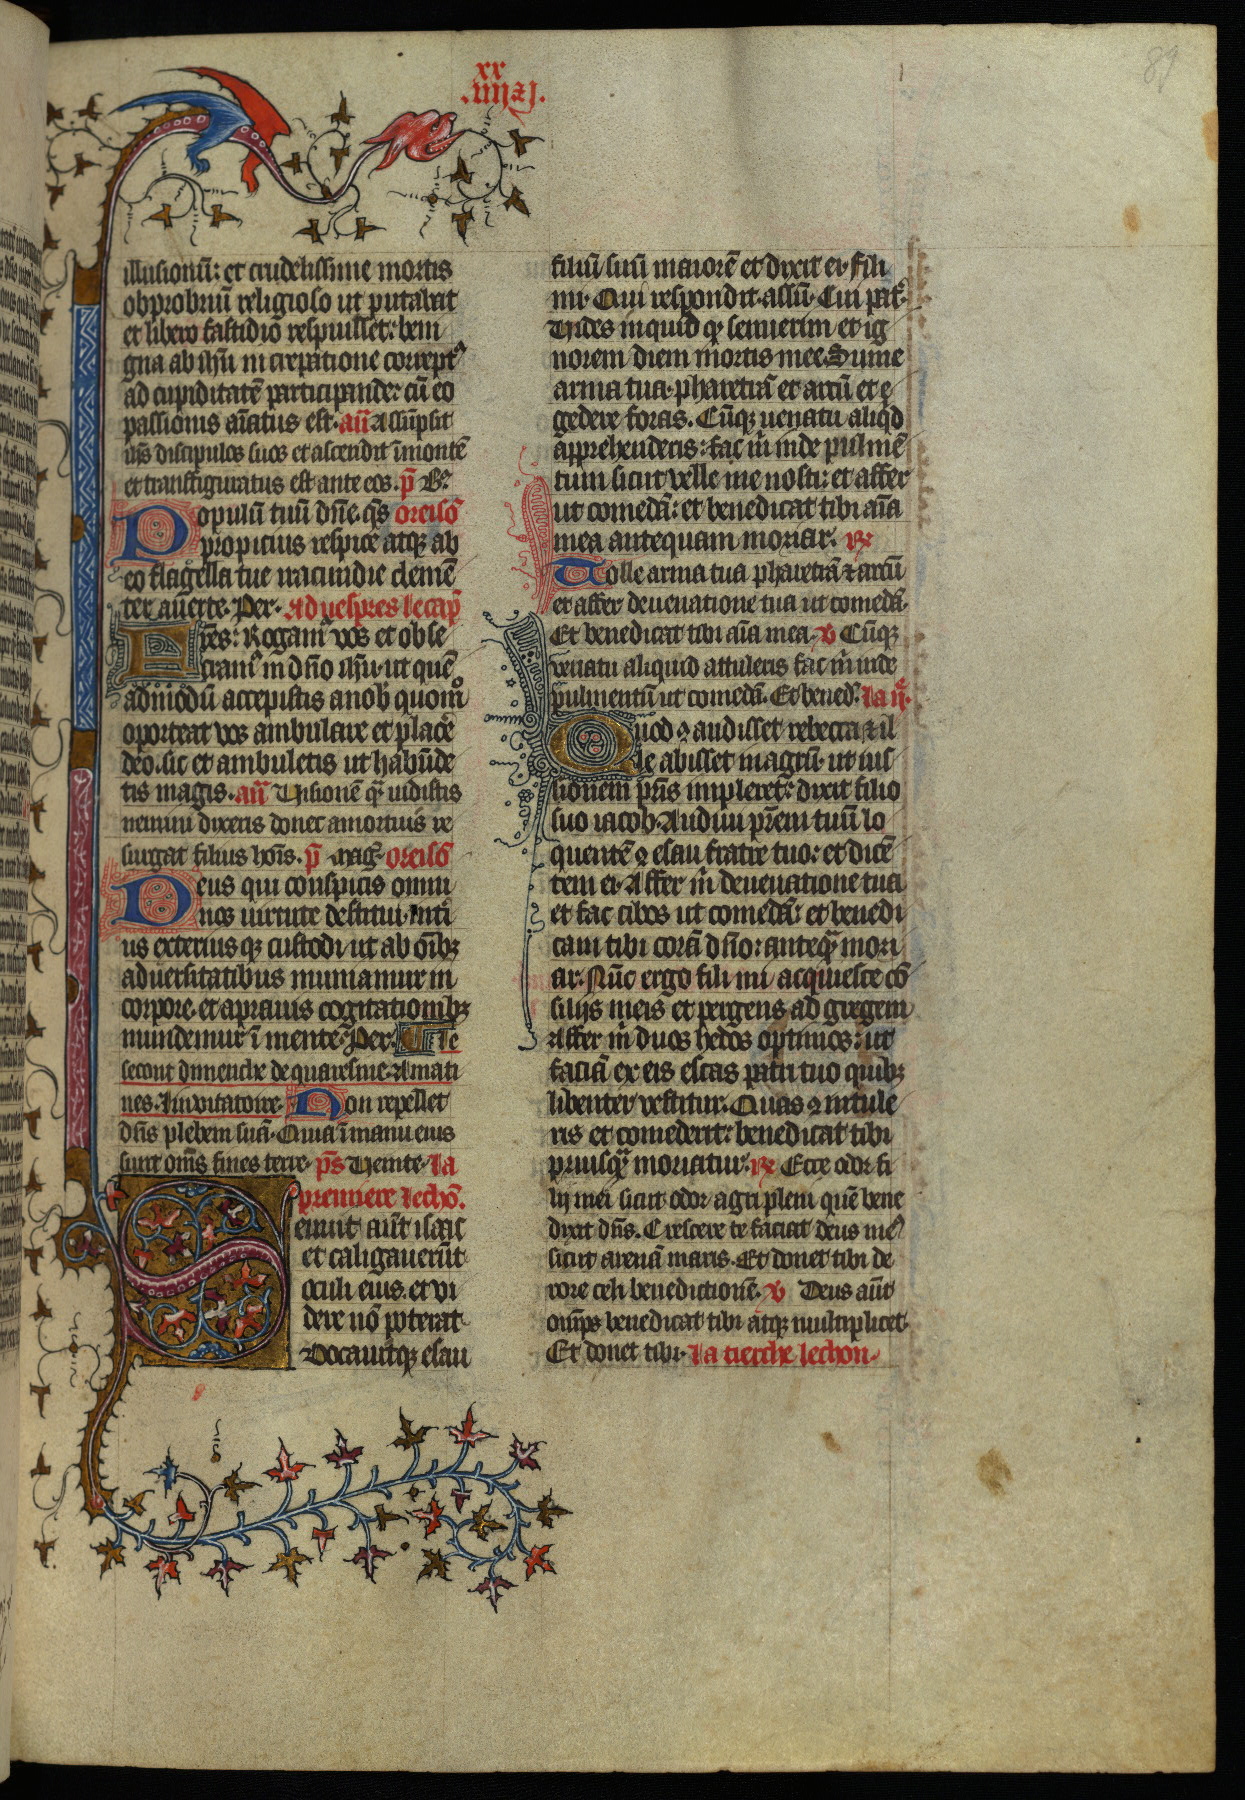 xx
.iiii⁊i.
89
illusionū: et crudelissime mortis
obprobriū religioso ut putabat
et libero fastidio respuisset: beni
gna ab ihū increpatione correptꝰ
ad cupiditatē participande: cū eo
passionis aīatus est. añ Assūpsit
ihs discipulos suos et ascendit ī montē
et transfiguratus est ante eos. p̄ B.
Populū tuū dn̄e. q̄s oreisō
propicius respice atqꝫ ab
eo flagella tue iracundie clemē
ter auerte. Per. Ad vespres le cap̄
Fr̄es: Rogamꝰ vos et obse
cramꝰ in dn̄o ihū. ut quē
admodū accepistis a nob quomo
oporteat vos ambulare et place̅
deo. sic et ambuletis ut habūde
tis magis. añ Visionē q̄ vidistis
nemini dixeris donec a mortuis re
surgat filius hoīs. p̄ Mag̃. oreisō
Deus qui conspicis omni
nos uirtute destitui. inti
us exterius qꝫ custodi ut ab oībꝫ
aduersitatibus muniamur in
corpore. et a prauis cogitationibꝫ
mundemur ī mente. Per. Le
secont dimenche de quaresme. A mati
nes. Inuitatoire. Non repellet
dn̄s plebem suā. Quia ī manu eius
sunt om̄s fines terre. p̄s Venite. La
premiere lechō.
Senuit aūt isaac
et caligauerūt
oculi eius. et vi
dere nō poterat.
Vocauitqꝫ esau
filiū suū maiorē et dixit ei. Fili
mi. Qui respondit. assū. Cui patꝰ.
Vides inquid qꝫ senuerim et ig
norem diem mortis mee. Sume
arma tua. pharetrā et arcū et e
gedere foras. Cūqꝫ uenatu aliqd
apprehenderis: fac m̄ inde pulmē
tum sicut velle me nosti: et affer
ut comedā: et benedicat tibi aīa
mea antequam moriar. R̄
Tolle arma tua pharetrā ⁊ arcū
et affer de uenatione tua ut comedā.
Et benedicat tibi aīa mea. v̄ Cūqꝫ
venatu aliquid attuleris fac m̄ inde
pulmentū ut comedā. Et bened. la ij.
Quod ꝯ audisset rebecca ⁊ il
le abisset in agrū. ut ius
sionem pr̄is impleret: dixit filio
suo iacob. Audiui pr̄em tuū lo
quentē ꝯ esau fratre tuo: et dicē
tem ei. Affer m̄ de uenatione tua
et fac cibos ut comedā: et benedi
cam tibi corā dn̄o: anteq̄ mori
ar. Nūc ergo fili mi acquiesce cō
silijs meis et pergens ad gregem
Affer m̄ duos hedos optimos: ut
faciā ex eis escas patri tuo quibꝫ
libenter vescitur. Quas ꝯ intule
ris et comederit: benedicat tibi
priusq̄ moriatur. R̄ Ecce odor fi
lij mei sicut odor agri pleni quē bene
dixit dn̄s. Crescere te faciat deus meꝰ
sicut arenā maris. Et donet tibi de
rore celi benedictionē. v̄ Deus aūt
omīps benedicat tibi atqꝫ multiplicet
Et donet tibi. La tierche lechon.